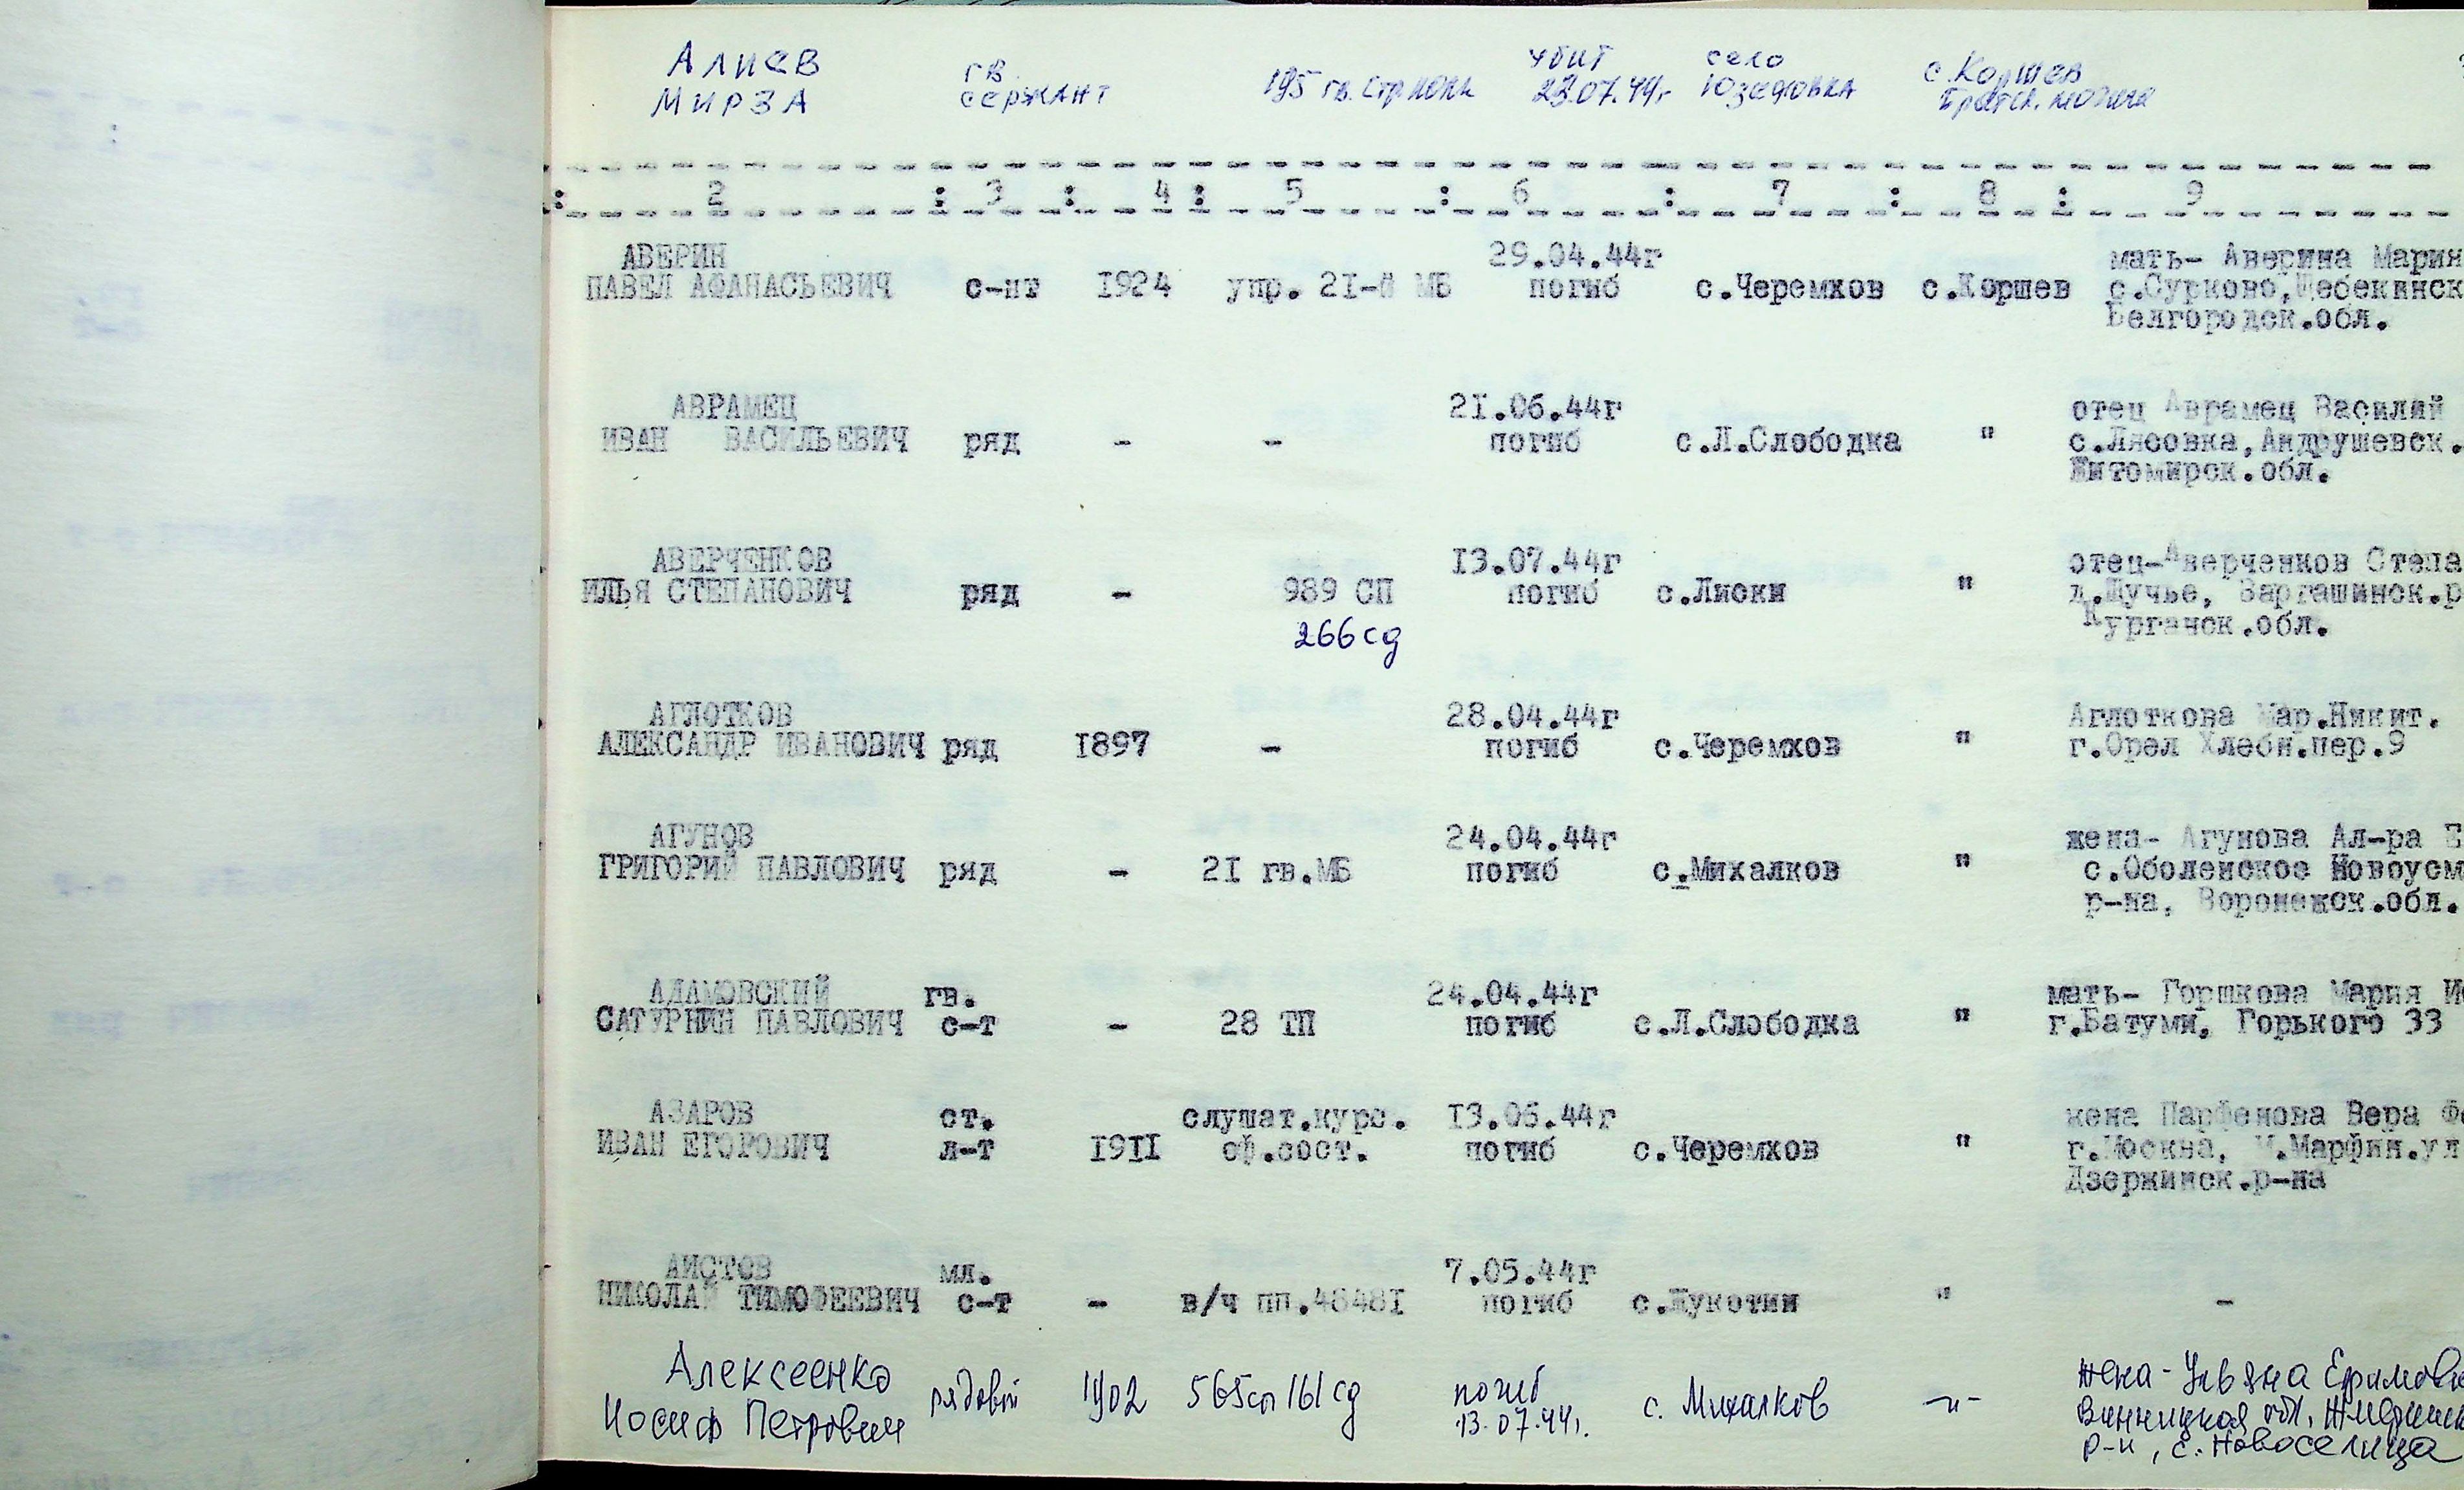 Алиев гв. убит село с. Коршев
Мирза сержант 195 гв. стр полк 23.07.44г Юзефовка братск. могила
: 2 : 3 : 4 : 5 : 6 : 7 : 8 : 9
АВЕРИН 29.04.44г мать- Аверина Мария
ПАВЕЛ АФАНАСЬЕВИЧ с-нт 1924 упр. 2I-й МБ погиб с.Черемхов с.Коршев с.Сурково,Шебекинск
Белгородск.обл.
АВРАМЕЦ 2I.06.44г отец Аврамец Василий
ИВАН ВАСИЛЬЕВИЧ ряд - - погиб с.Л.Слободка " с.Лясовка,Андрушевск.
Житомирск.обл.
АВЕРЧЕНКОВ I3.07.44г отец-Аверченков Степа
ИЛЬЯ СТЕПАНОВИЧ ряд - 989 СП погиб с.Лиски " д.Щучье, Варгашинск.р
266 сд Курганск.обл.
АГЛОТКОВ 28.04.44г Аглоткова Мар.Никит.
АЛЕКСАНДР ИВАНОВИЧ ряд I897 - погиб с.Черемхов " г.Орел Хлебн.пер.9
АГУНОВ 24.04.44г жена- Агунова Ал-ра Е
ГРИГОРИЙ ПАВЛОВИЧ ряд - 2I гв.МБ погиб с.Михалков " с.Оболенское Новоусм
р-на, Воронежск.обл.
АДАМОВСКИЙ гв. 24.04.44г мать- Горшкова Мария И
САТУРНИН ПАВЛОВИЧ с-т - 28 ТП погиб с.Л.Слободка " г.Батуми, Горького 33
АЗАРОВ ст. слушат.курс. I3.05.44г жена Парфенова Вера Ф
ИВАН ЕГОРОВИЧ л-т I9II оф.сост. погиб с.Черемхов " г.Москва, М.Марфин.ул
Дзержинск.р-на
АИСТОВ мл. 7.05.44г
НИКОЛАЙ ТИМОФЕЕВИЧ с-т - в/ч пп.4848I погиб с.Жукотин " -
Алексеенко погиб жена-Ульяна Ефимовн
Иосиф Петрович рядовой 1902 565сп 161 сд 13.07.44г. с. Михалков -"- Винницкая обл,
р-н, с. Новоселица